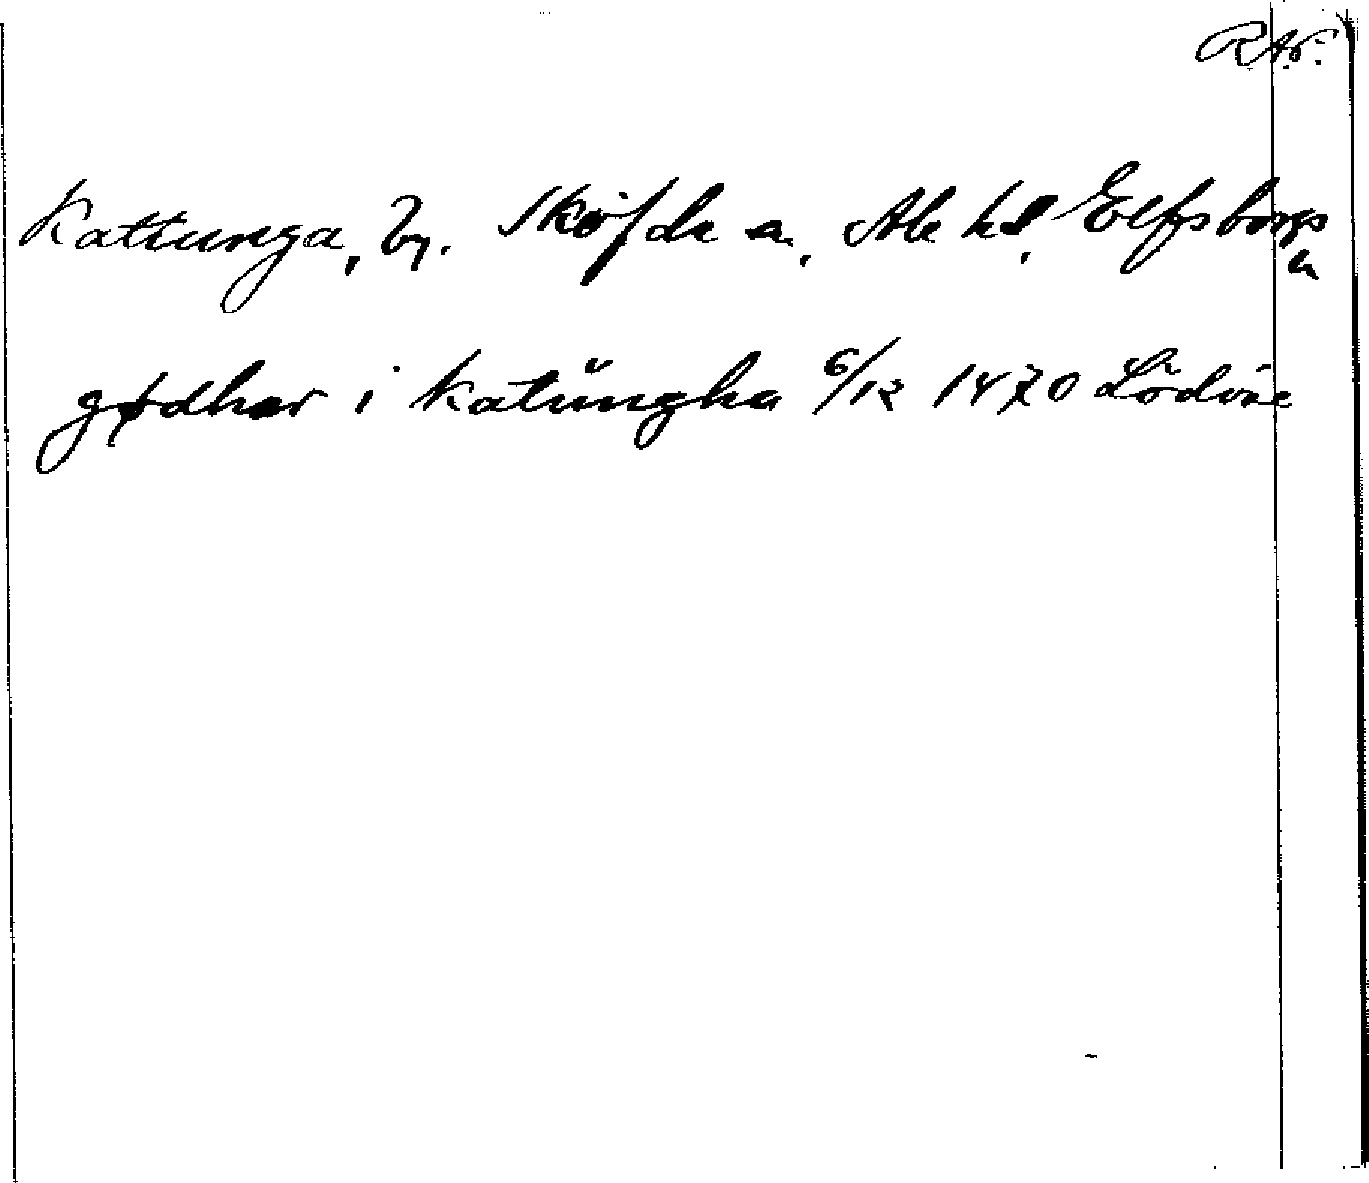 R.A.P.
Kattunga, by. Sköfde sn, Ale hd, Elfsborgs
ln
gødher i Katŭngha 6/12 1470 Lödöse